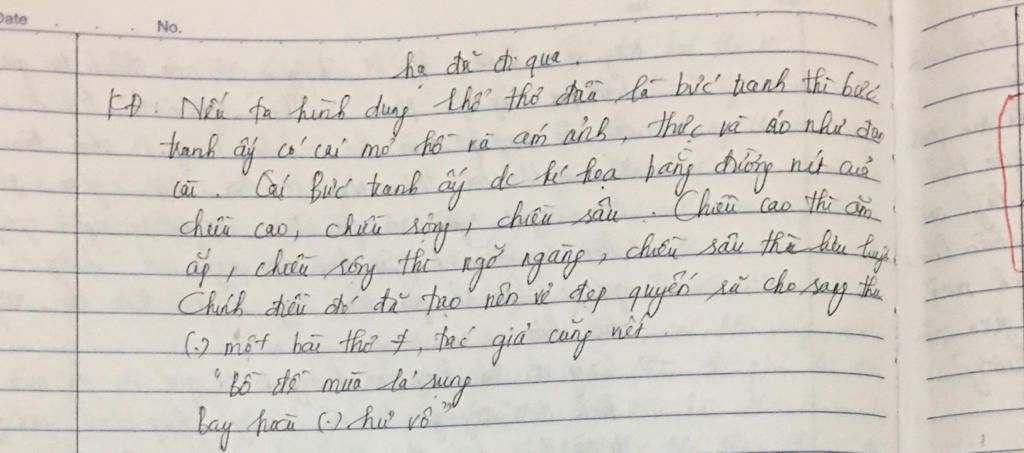 Date No.
hạ đã đi qua.
KĐ: Nếu ta hình dung khổ thơ đầu là bức tranh thì bức
tranh ấy có cái mơ hồ và ám ảnh, thực và ảo như đan
cài. Cái bức tranh ấy đc kí họa bằng đường nét của
chiều cao, chiều rộng, chiều sâu. Chiều cao thì ăm
ắp, chiều rộng thì ngỡ ngàng, chiều sâu thì lưu luyến
Chính điều đó đã tạo nên vẻ đẹp quyến rũ cho sang thu
(.) một bài thơ ≠, tác giả cũng viết
"Bồ đề mùa lá rụng
Bay hoài (.) hư vô"